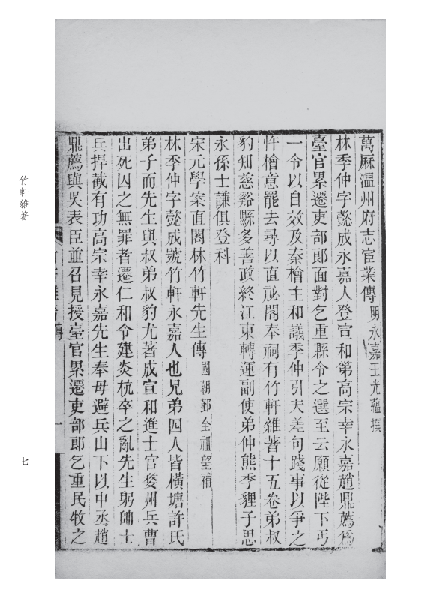 萬厤溫州府志宦業傳 明永嘉王光蘊撰
林季仲字懿成永嘉人登宣和第高宗幸永嘉趙鼎薦爲
臺官累遷吏部郎面對乞重縣令之選至云願從陛下丐
一令以自效及秦檜主和議季仲引夫差句踐事以爭之
忤檜意罷去尋以直祕閣奉祠有竹軒雜著十五卷弟叔
豹知慈谿縣多善政終江東轉運副使弟仲熊季貍子思
永孫士謙俱登科
宋元學案直閣林竹軒先生傳 國朝鄞全祖望補
林季仲字懿成號竹軒永嘉人也兄弟四人皆橫塘許氏
弟子而先生與叔弟叔豹尤著成宣和進士官婺州兵曹
出死囚之無罪者遷仁和令建炎杭卒之亂先生躬帥士
兵捍蔽有功高宗幸永嘉先生奉母避兵山下以中丞趙
鼎薦與吳表臣並召見授臺官累遷吏部郎乞重民牧之
竹軒雜著
七